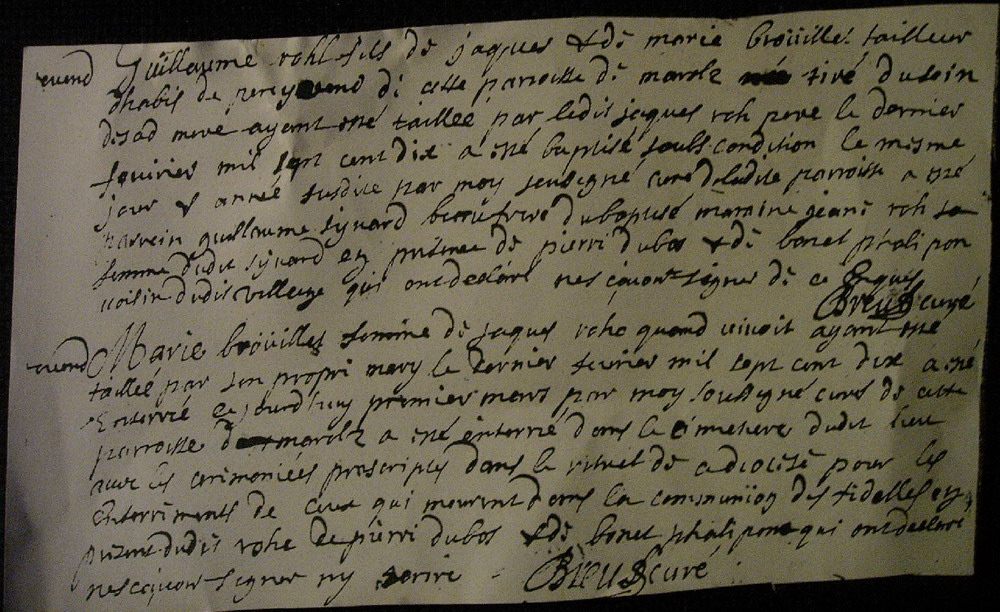 Guillaume roh fils de jaques & de marie broüilles tailleur
dhabis de percy de cette parroisse de marolz tiré du sein
de sad mere ayant esté taillée par ledit jaques roh pere le dernier
fevrier mil sept cent dix a esté baptisé soubs condition le mesme
jour & année susdite par moy soussigné curé de ladite parroisse a esté
parrein guillaume sijuard beaufrere du baptisé maraine jeane roh sa
femme dudit sijuard en presence de pierre dubos & de bonet phalipon
voisin dudit village qui ont declaré ne sçavoir signer de ce enquis
Breu curé
Marie broüilles femme de jaques rohe quand vivoit ayant esté
taillée par son propre mary le dernier fevrier mil sept cent dix a esté
Enterrée ce jourdhuy premier mars par moy soussigné curé de cette
parroisse de marolz a esté enterrée dans le cimetiere dudit lieu
avec les ceremonies prescriptes dans le rituel de ce diocese pour les
enterrements de ceux qui meurent dans la communion des fidelles en
presence dudit rohe de pierre dubos & de bonet phalipon qui ont declaré
ne sçavoir signer ny scrire Breu curé